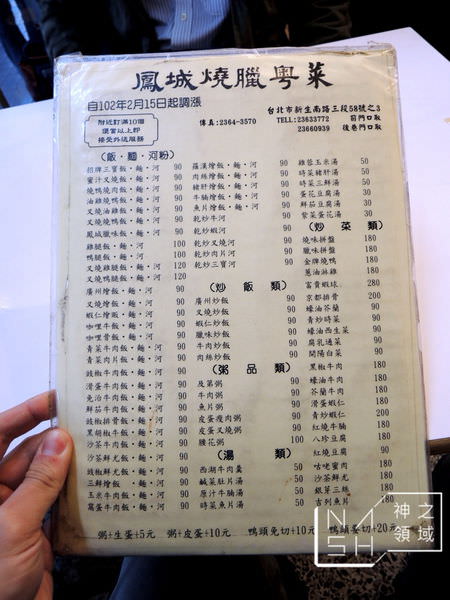 鳳城燒臘粵菜
自102年2月15日起調漲
附近訂滿10個
便當以上即
接受外送服務
傳真:2364-3570
台北市新生南路三段58號之3
TEL:23633772 前門口取
23660939 後巷門口取
(飯・麵・河粉)
招牌三寶飯・麵・河 90
蜜汁叉燒飯・麵・河 90
燒鴨燒肉飯・麵・河 90
油雞燒鴨飯・麵・河 90
叉燒油雞飯・麵・河 90
叉燒燒鴨飯・麵・河 90
鳳城臘味飯・麵・河 90
雞腿飯・麵・河 100
鴨腿飯・麵・河 100
叉燒雞腿飯・麵・河 120
叉燒鴨腿飯・麵・河 120
廣州燴飯・麵・河 90
叉燒燴飯・麵・河 90
蝦仁燴飯・麵・河 90
咖哩牛飯・麵・河 90
咖哩雞飯・麵・河 90
青菜牛肉飯・麵・河 90
青菜肉片飯・麵・河 90
豉椒牛肉飯・麵・河 90
滑蛋牛肉飯・麵・河 90
免治牛肉飯・麵・河 90
鮮茄牛肉飯・麵・河 90
豉椒排骨飯・麵・河 90
黑胡椒牛飯・麵・河 90
沙茶牛肉飯・麵・河 90
沙茶鮮尤飯・麵・河 90
豉椒鮮尤飯・麵・河 90
三鮮燴飯・麵・河 90
玉米牛肉飯・麵・河 90
窩蛋牛肉飯・麵・河 90
羅漢燴飯・麵・河 90
肉絲燴飯・麵・河 90
豬肝燴飯・麵・河 90
牛腩燴飯・麵・河 90
魚片燴飯・麵・河 90
乾炒牛河 90
乾炒蝦河 90
乾炒叉燒河 90
乾炒肉片河 90
乾炒三寶河 90
(炒飯類)
廣州炒飯 90
叉燒炒飯 90
蝦仁炒飯 90
臘味炒飯 90
牛肉炒飯 90
肉絲炒飯 90
(粥品類)
及第粥 90
牛肉粥 90
魚片粥 90
皮蛋瘦肉粥 90
皮蛋叉燒粥 90
腰花粥 100
(湯類)
西湖牛肉羹 50
鹹菜肚片湯 50
原汁牛腩湯 50
時菜魚片湯 50
雞蓉玉米湯 50
時菜豬肝湯 50
時菜三鮮湯 50
蛋花豆腐湯 50
鮮茄豆腐湯 50
紫菜蛋花湯 50
(炒菜類)
燒味拼盤 180
臘味拼盤 180
金牌燒鴨 180
蔥油淋雞 180
富貴蝦球 280
京都排骨 200
蠔油芥蘭 180
青炒時菜 180
蠔油西生菜 180
腐乳通菜 180
開陽白菜 180
黑椒牛肉 180
蠔油牛肉 180
芥蘭牛肉 180
滑蛋蝦仁 180
青炒蝦仁 200
紅燒牛腩 180
八珍豆腐 180
紅燒豆腐 90
咕咾蜜肉 180
沙茶鮮尤 180
銀芽三絲 180
吉列魚片 180
粥+生蛋+5元 粥+皮蛋+10元 鴨頭免切+10元 鴨頭要切+20元
神之領域